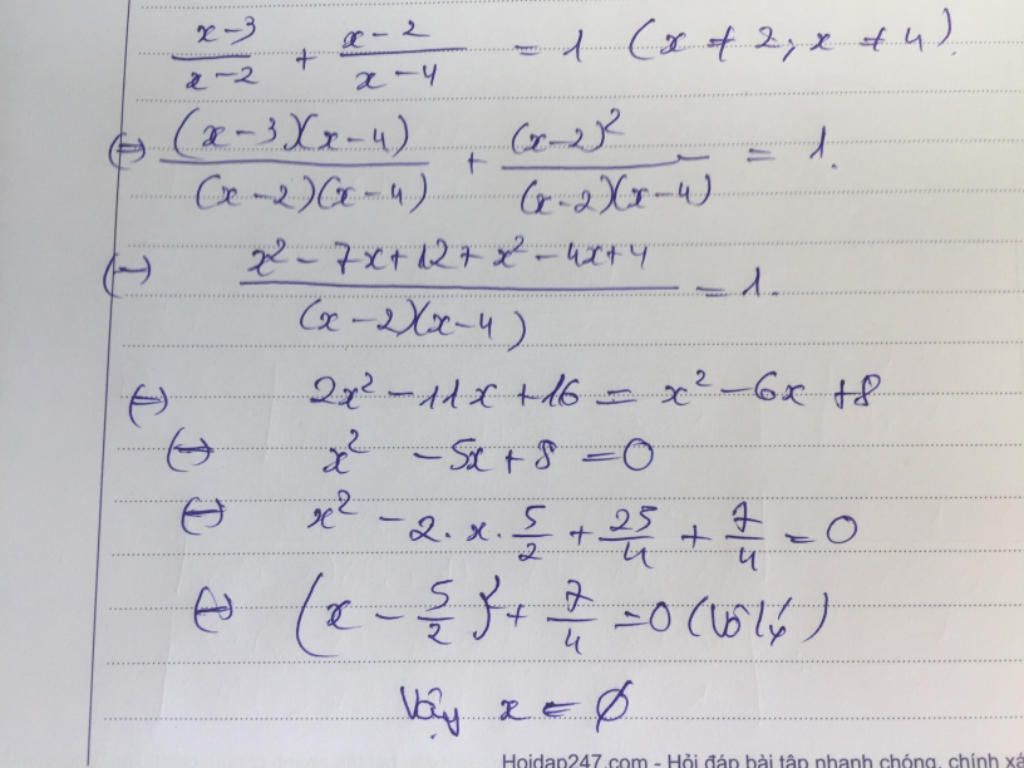 x-3/x-2 + x-2/x-4 = 1 (x ≠ 2; x ≠ 4).
⇔ (x-3)(x-4)/(x-2)(x-4) + (x-2)²/(x-2)(x-4) = 1.
⇔ x² - 7x + 12 + x² - 4x + 4/(x-2)(x-4) = 1.
⇔ 2x² - 11x + 16 = x² - 6x + 8
⇔ x² - 5x + 8 = 0
⇔ x² - 2. x. 5/2 + 25/4 + 7/4 = 0
⇔ (x - 5/2)² + 7/4 = 0 (Vô lý)
Vậy x = ∅
Hoidap247.com - Hỏi đáp bài tập nhanh chóng, chính xá